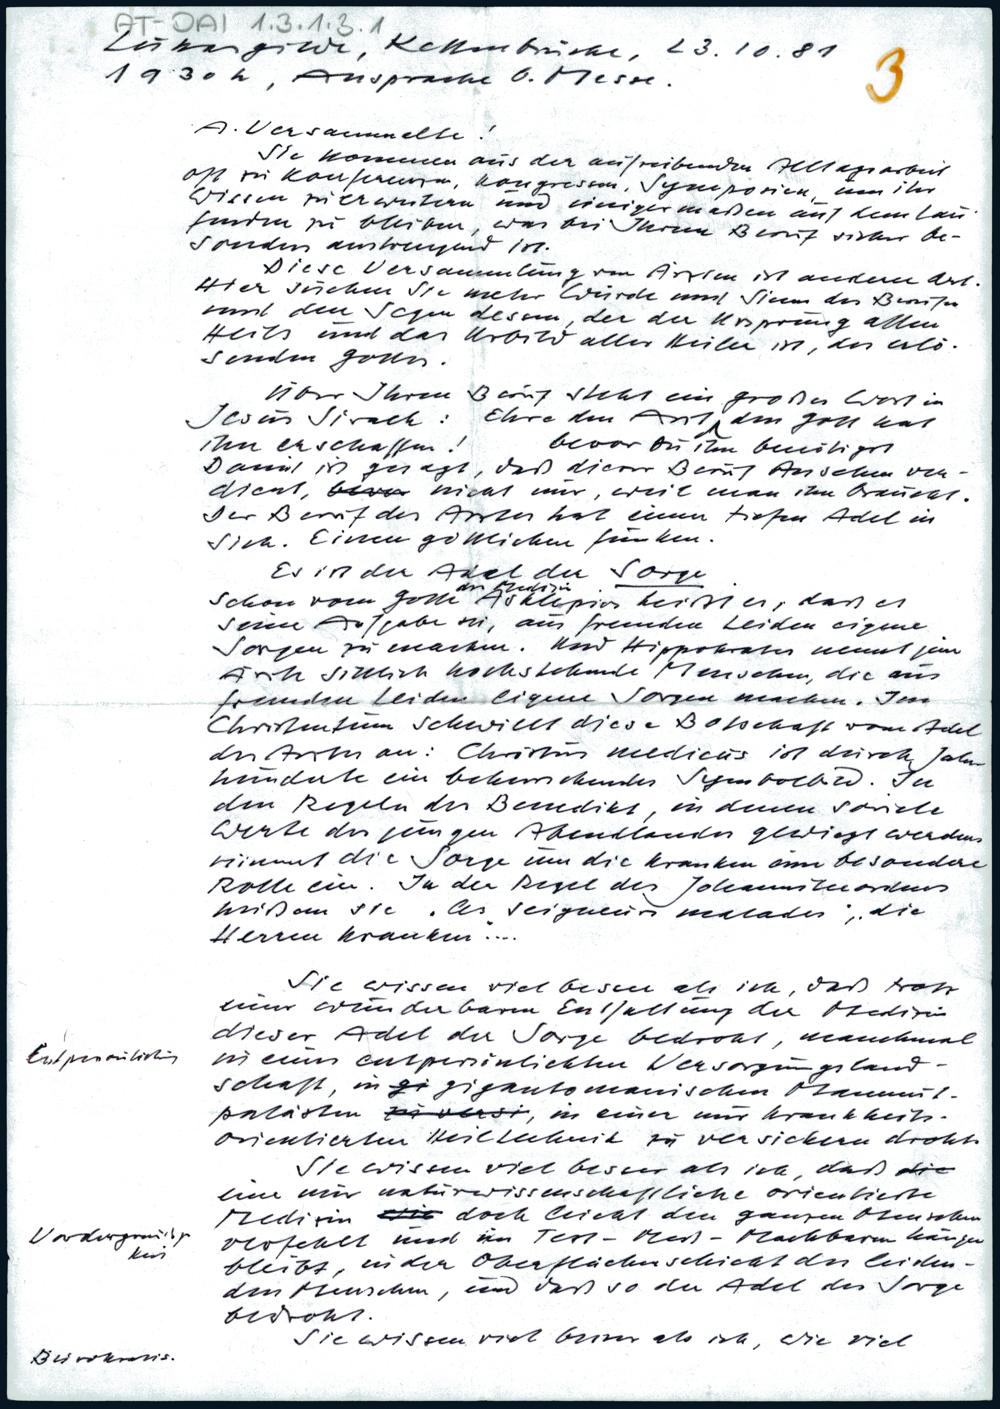 AT-DAI 1.3.1.3.1
Lukasgilde, Kettenbrücke, 23.10.81
19 30 h, Ansprache b. Messe.
3
A. Versammelte!
Sie kommen aus der aufreibenden Alltagsarbeit
oft zu Konferenzen, Kongressen, Symposien, um ihr
Wissen zu erweitern und einigermaßen auf dem Lau
fenden zu bleiben, was bei Ihrem Beruf sicher be-
sonders anstrengend ist.
Diese Versammlung von Ärzten ist anderer Art.
Hier suchen Sie mehr Würde und Sinn des Berufes
und den Segen dessen, der der Ursprung allen
Heils und das Urbild aller Heiler ist, des erlö-
senden Gottes.
Über Ihrem Beruf steht ein großes Wort in
Jesus Sirach: Ehre den Arzt, denn Gott hat
ihn erschaffen! bevor du ihn benötigst
Damit ist gesagt, daß dieser Beruf Ansehen ver-
dient, bevor nicht nur, weil man ihn braucht.
Der Beruf des Arztes hat einen tiefen Adel in
sich. Einen göttlichen Funken.
Es ist der Adel der Sorge
der Medizin
Schon vom Gotte Asklepios heißt es, daß es
seine Aufgabe sei, aus fremden Leiden eigene
Sorgen zu machen. Und Hippokrates nennt jene
Ärzte sittlich hochstehende Menschen, die aus
fremden Leiden eigene Sorgen machen. Im
Christentum schwillt diese Botschaft vom Adel
des Arztes an: Christus medicus ist durch Jahr-
hunderte ein beherrschendes Symbolbild. In
den Regeln des Benedikt, in denen soviele
Werte des jungen Abendlandes gewiegt werden,
nimmt die Sorge um die Kranken eine besondere
Rolle ein. In der Regel des Johanniterordens
heißen sie „les seigneurs malades", „die
Herren Kranken"...
Sie wissen viel besser als ich, daß trotz
einer wunderbaren Entfaltung der Medizin
dieser Adel der Sorge bedroht, manchmal
Entpersönlichung
in einer entpersönlichten Versorgungsland-
schaft, in gi gigantomanischen Mammut-
palästen zu versi, in einer nur krankheits-
orientierten Heiltechnik zu versickern droht.
Sie wissen viel besser als ich, daß die
eine nur naturwissenschaftliche orientierte
Medizin die doch leicht den ganzen Menschen
Vordergründig
keit
verfehlt und im Test-Meß-Machbaren hängen
bleibt, in der Oberflächenschicht des leiden-
den Menschen, und daß so der Adel der Sorge
bedroht.
Sie wissen viel besser als ich, wie viel
Bürokratie.